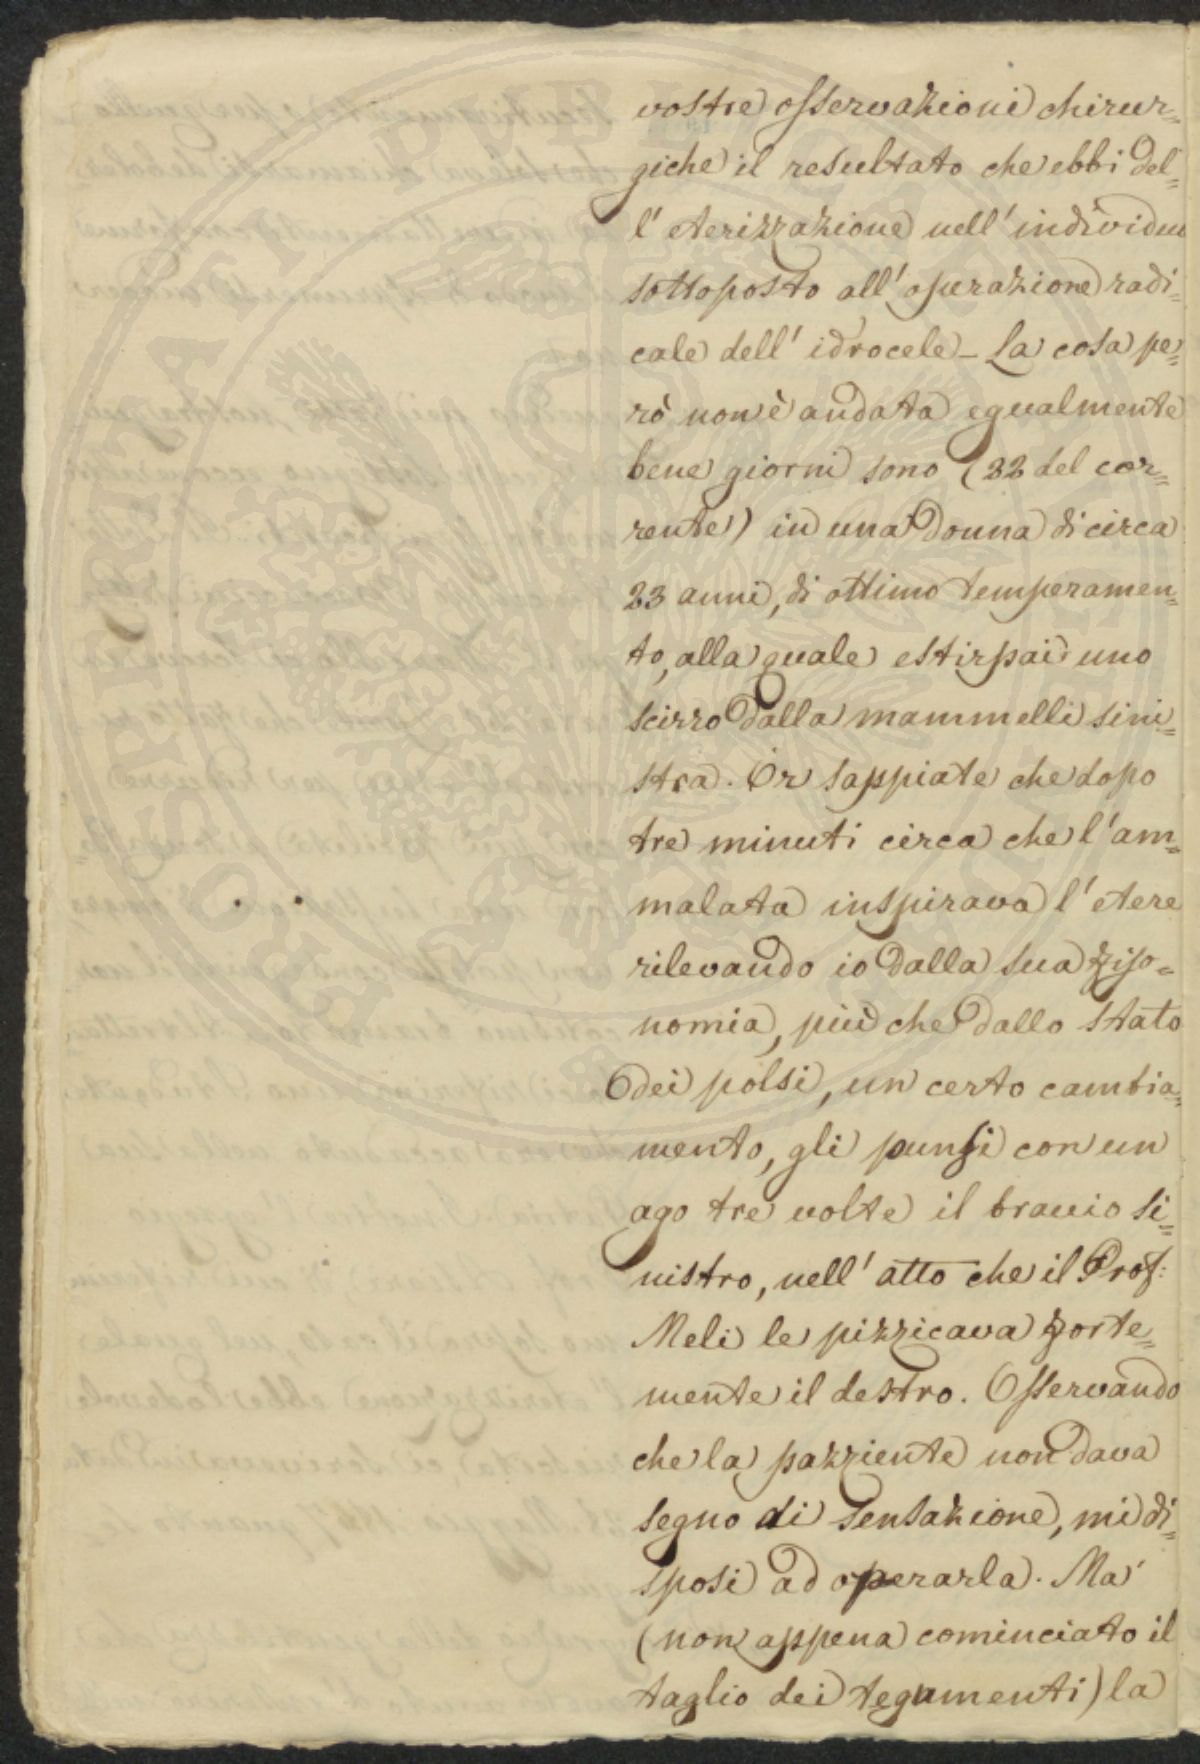 vostre osservazioni chirur=
giche il resultato che ebbi del=
l' eterizzazione nell' individuo
sottoposto all' operazione radi=
cale dell' idrocele - La cosa pe=
rò non è andata egualmente
bene giorni sono (22 del cor=
rente) in una donna di circa
23 anni, di ottimo temperamen=
to, alla quale estirpai uno
scirro dalla mammelli sini=
stra. Or sappiate che dopo
tre minuti circa che l' am=
malata inspirava l' etere
rilevando io dalla sua fiso=
nomia, più che dallo stato
dei polsi, un certo cambia=
mento, gli punsi con un
ago tre volte il braccio si=
nistro, nell' atto che il Prof:
Meli le pizzicava forte=
mente il destro. Osservando
che la pazziente non dava
segno di sensazione, mi di=
sposi ad operarla. Ma
(non appena cominciato il
taglio dei tegumenti) la
PROSPERITATI PUBLICAE